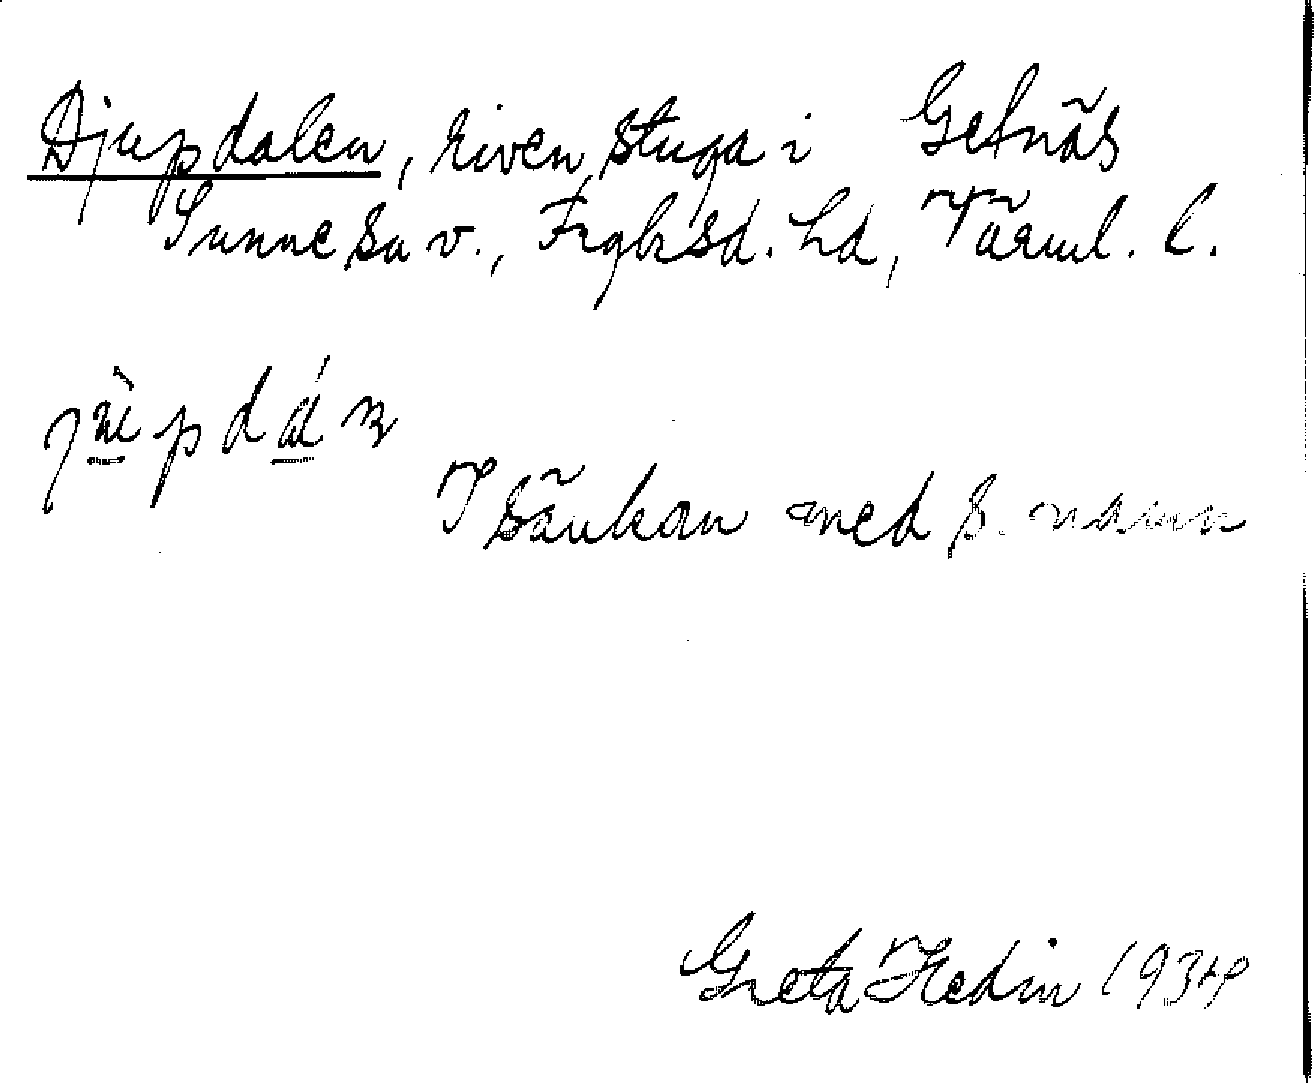 Djupdalen, riven stuga i Gefnäs
Sunne sn v., Frykrsd. hd, Värml. l.
I sänkan med s. namn
Greta Hedin 1934